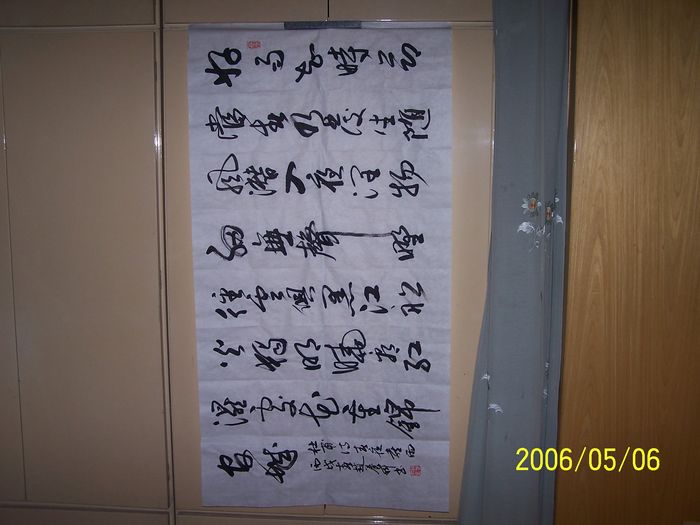 好雨知時節
當春乃發生隨
風潛入夜潤物
細無聲野
徑雲俱黑江船
火獨明曉看紅
濕處花重錦
官城
杜甫詩春夜喜雨
丙戌
2006/05/06